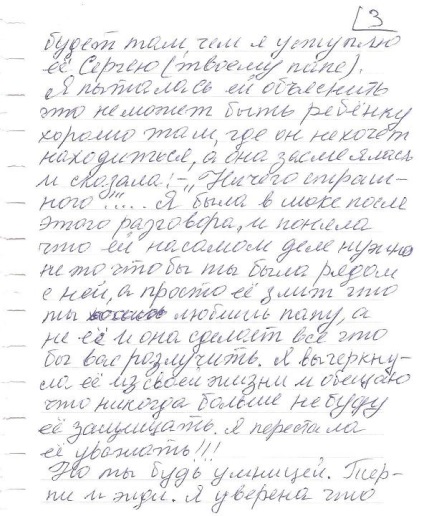 3
будет там, чем я уступлю
её Сергею (твоему папе).
Я пыталась ей объяснить
это неможет быть ребёнку
хорошо там, где он нехочет
находиться, а она засмеялась
и сказала: - "Ничего страш-
ного!"... Я была в шоке после
этого разговора, и поняла
что ей насамом деле нужно
не то что бы ты была рядом
с ней, а просто её злит что
ты любишь папу, а
не её и она сделает всё что
бы вас розлучить. Я вычеркну-
ла её из своей жизни и обещаю
что никогда больше небуду
её защищать. Я перестала
её уважать!!!
Но ты будь умницей. Тер-
пи и жди. Я уверена что